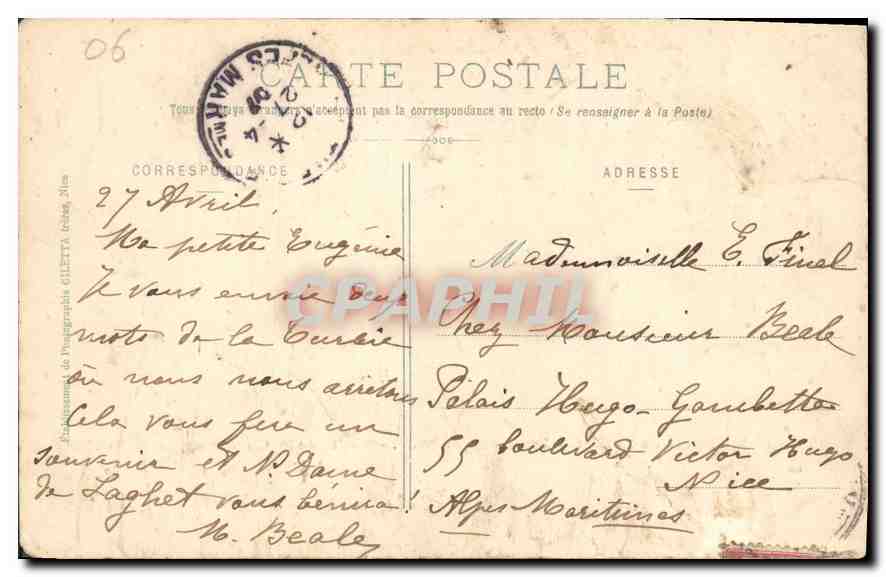 06
CARTE POSTALE
Tous les Pays étrangers n'acceptent pas la correspondance au recto (Se renseigner à la Poste)
CORRESPONDANCE
27 Avril.
Ma petite Eugénie
Je vous envoie deux
mots de la Turbie
où nous nous arrêtons
Cela vous fera un
souvenir et N. Dame
de Laghet vous bénira!
M. Beale
ADRESSE
Mademoiselle E. Finel
Chez Monsieur Beale
Palais Hugo-Gambetta
55 boulevard Victor Hugo
Nice
Alpes Maritimes
Etablissement de Photographie GILETTA frères, Nice
CPAPHIL